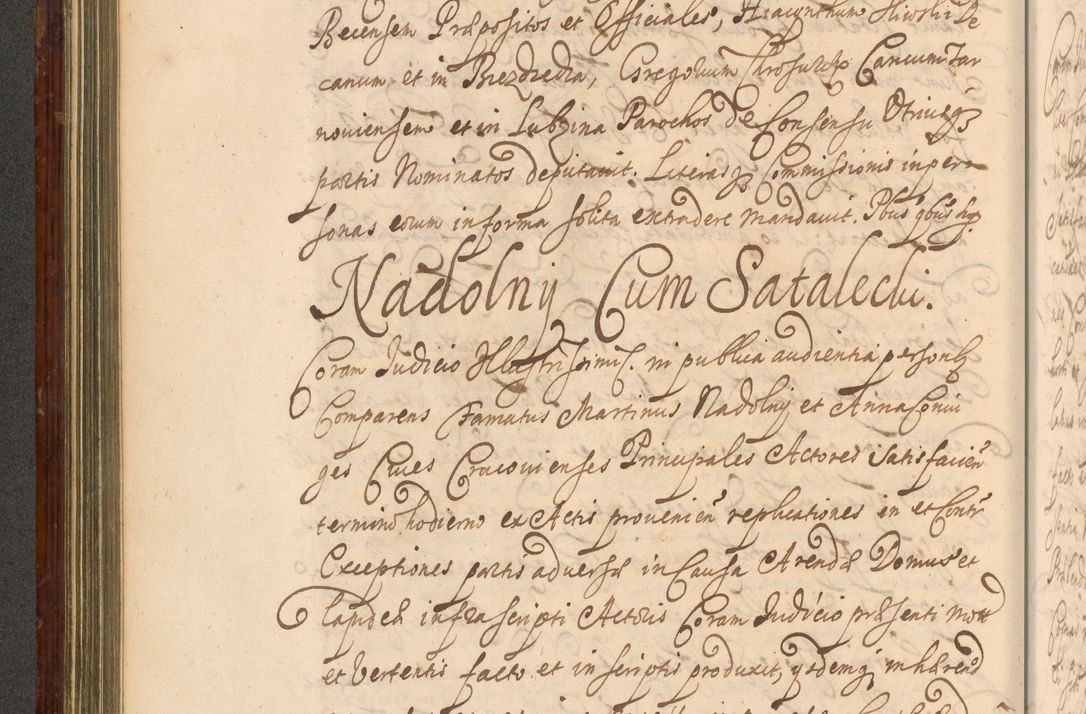 Becensem Præpositos et Officiales, Hiacynthum Sliwski De
canum et in Brezdredza, Gregorium Cancum Tar
noviensem et in Lubzina Parochos de Consensu Utriusq3
partis Nominatos deputavit. Literasq3 Commissionis in per
sonas eorum in forma solita extradere mandavit. Pbus qbus
Nadolny Cum Satalecki.
Coram Judicio Illustrissimi. in publica audientia personlr
Comparens Famatus Martinus Nadolny et Anna Coniu
ges Cives Cracovienses Principales Actores satisfacien
termino hodierno ex Actis provenien replicationes in et Contr
Exceptiones partis adversæ in Causa Arendæ Domus et
lapideæ infrascripti Actoris Coram Judicio præsenti mott
et vertentis facto et in scriptis produxit, ysdemq inhærend